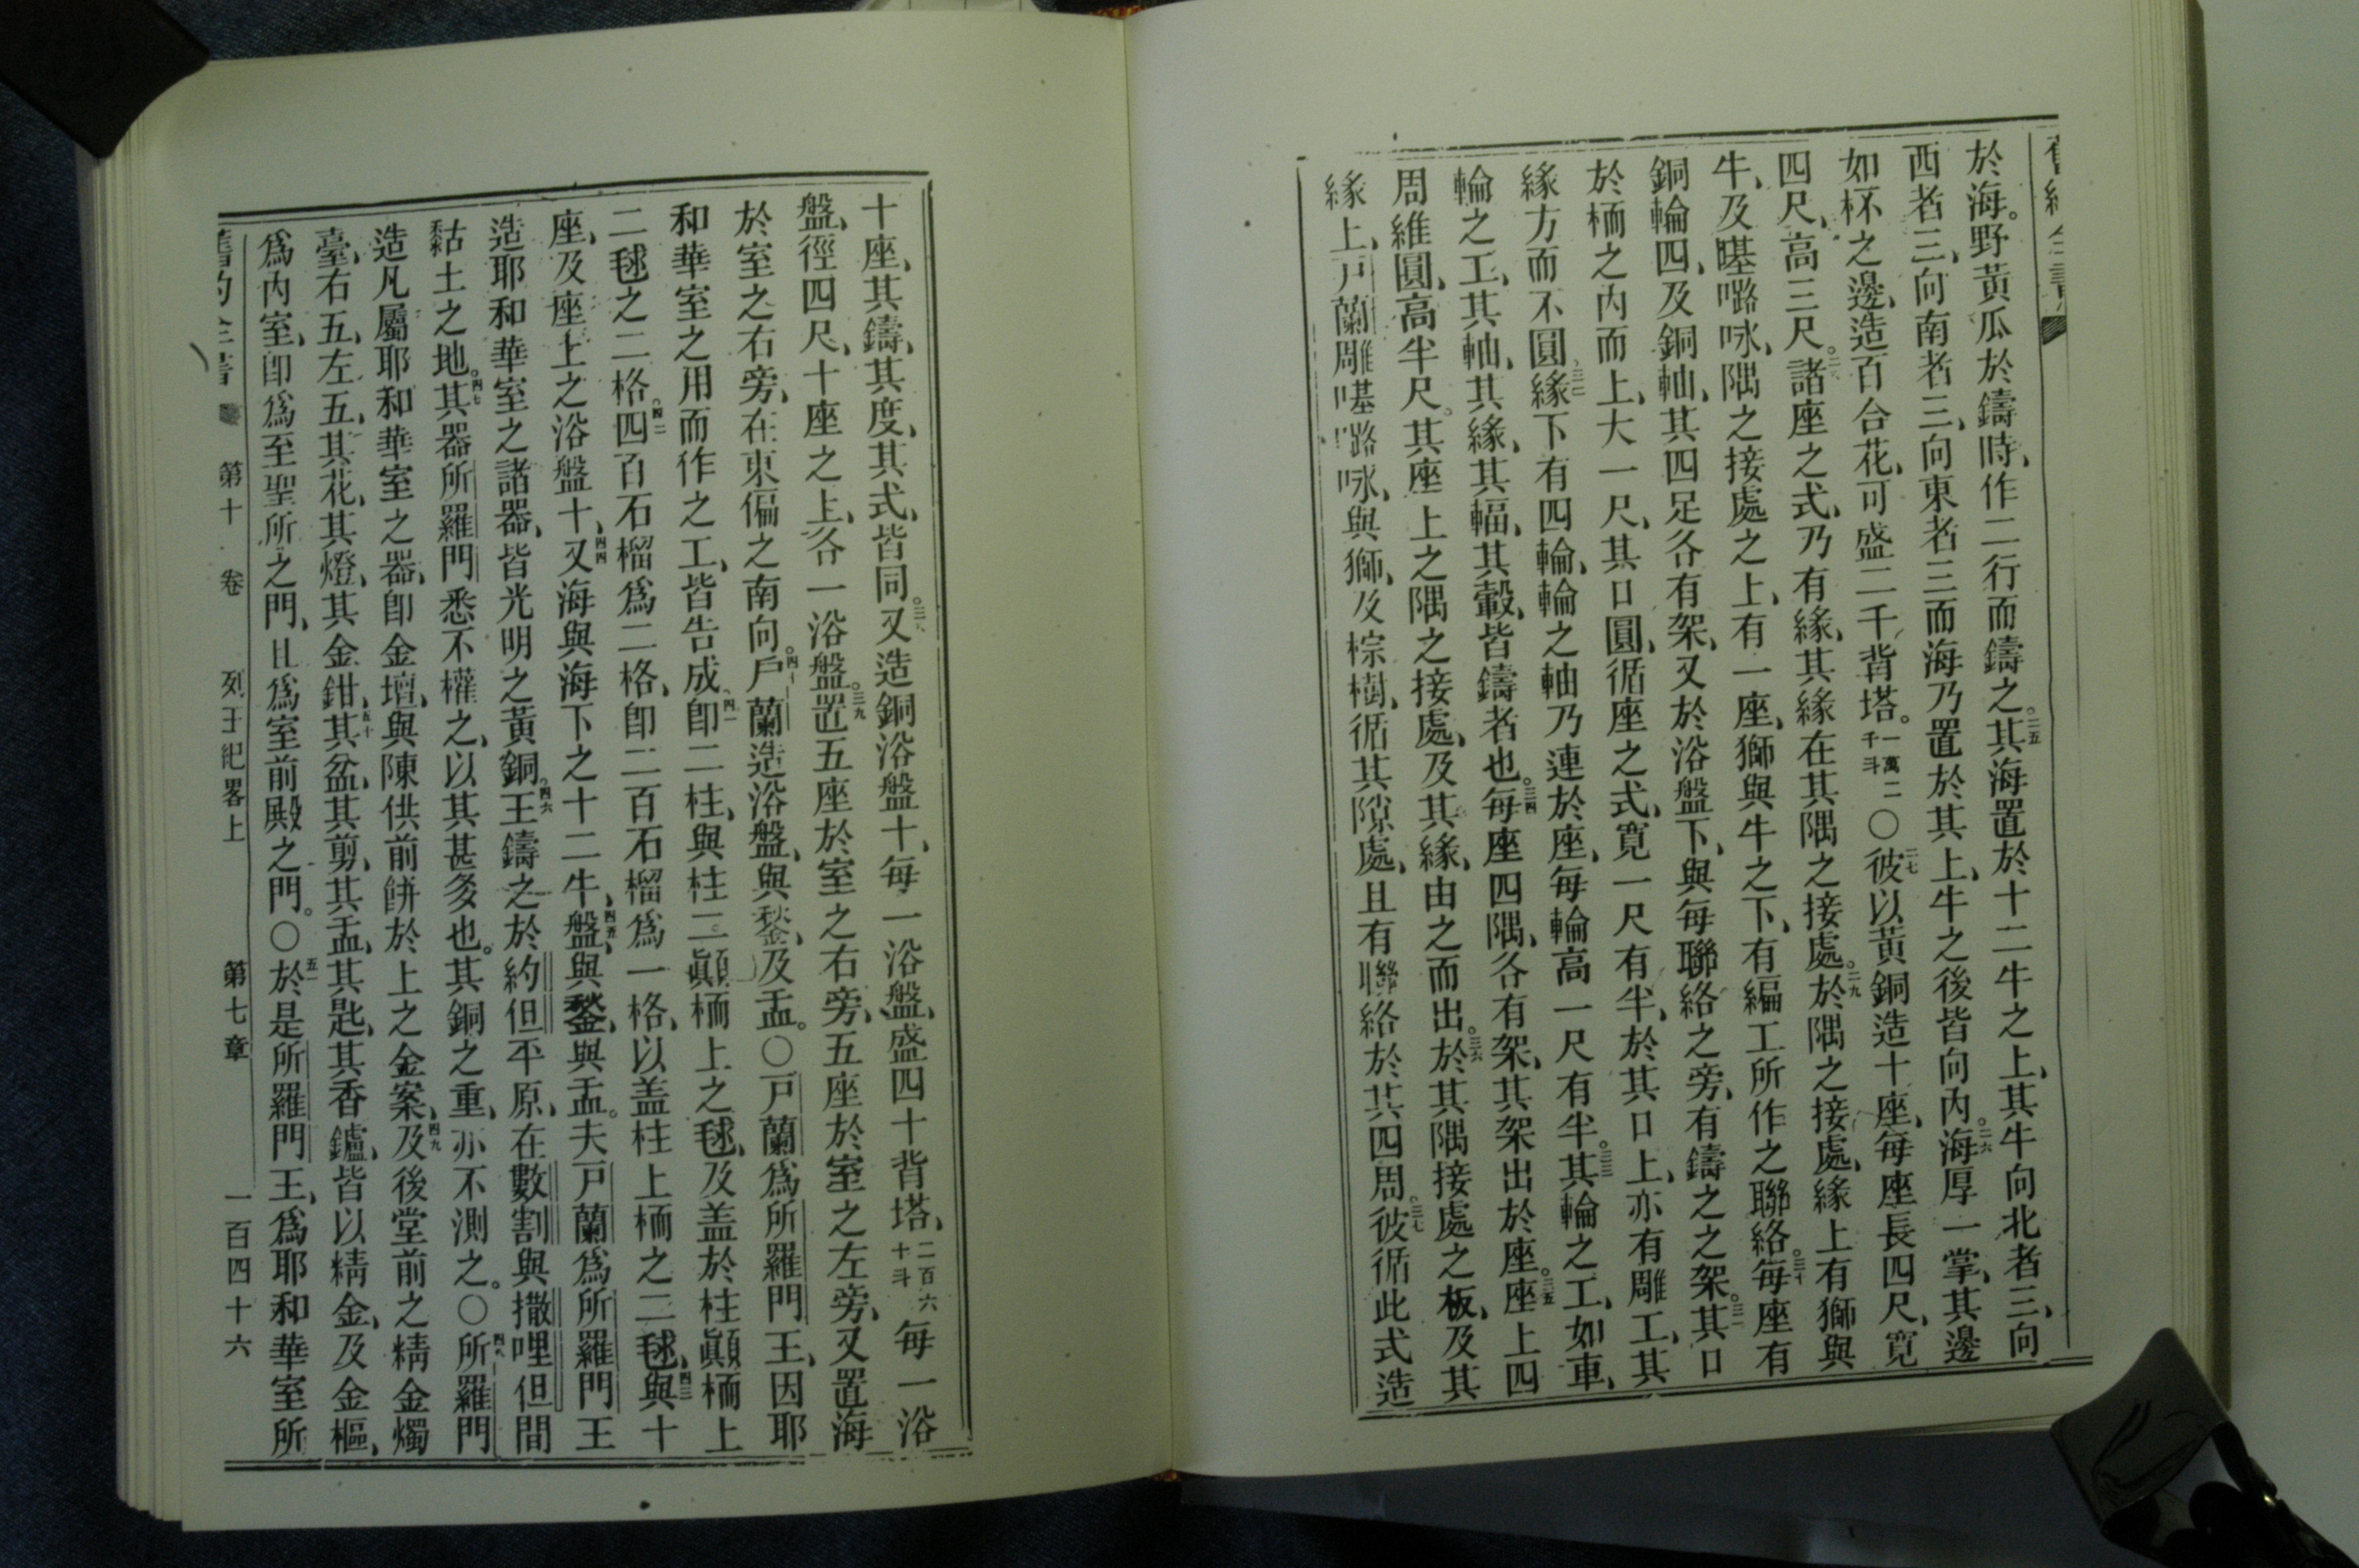 舊約全書
於海。野黃瓜於鑄時、作二行而鑄之。二五其海置於十二牛之上、其牛向北者三、向
西者三、向南者三、向東者三而海乃置於其上、牛之後皆向內。二六海厚一掌、其邊
如杯之邊、造百合花、可盛二千背塔。一萬二千斗〇二七彼以黃銅造十座、每座長四尺、寬
四尺、高三尺。二八諸座之式、乃有緣、其緣在其隅之接處。二九於隅之接處、緣上有獅與
牛、及𠸄嚕咏、隅之接處之上、有一座、獅與牛之下、有編工所作之聯絡。三十每座有
銅輪四、及銅軸、其四足各有架、又於浴盤下、與每聯絡之旁、有鑄之之架。三一其口
於柄之內而上、大一尺、其口圓、循座之式、寬一尺有半、於其口上、亦有雕工、其
緣方而不圓、三二緣下有四輪、輪之軸乃連於座、每輪高一尺有半。三三其輪之工、如車
輪之工、其軸、其緣、其輻、其轂、皆鑄者也。三四每座四隅、各有架、其架出於座。三五座上四
周維圓、高半尺。其座上之隅之接處、及其緣、由之而出。三六於其隅接處之板、及其
緣上、戶蘭雕𠸄嚕咏、與獅、及棕樹、循其隙處、且有聯絡於其四周。三七彼循此式造
十座、其鑄、其度、其式、皆同。三八又造銅浴盤十、每一浴盤、盛四十背塔、二百六十斗每一浴
盤、徑四尺、十座之上、各一浴盤。三九置五座於室之右旁、五座於室之左旁、又置海
於室之右旁、在東偏之南向。四十戶蘭造浴盤、與鍫、及盂。〇戶蘭爲所羅門王、因耶
和華室之用而作之工、皆告成、四一卽二柱、與柱二顚柄上之毬、及盖於柱顚柄上
二毬之二格。四二四百石榴爲二格、卽二百石榴爲一格、以盖柱上柄之二毬、四三與十
座、及座上之浴盤十、四四又海與海下之十二牛、四五盤、與鍫、與盂。夫戶蘭爲所羅門王
造耶和華室之諸器、皆光明之黃銅。四六王鑄之於約但平原、在數割與撒哩但間
黏土之地。四七其器所羅門悉不權之、以其甚多也。其銅之重、亦不測之。〇四八所羅門
造凡屬耶和華室之器、卽金壇、與陳供前餠於上之金案、四九及後堂前之精金燭
臺、右五、左五、其花、其燈、其金鉗、五十其盆、其剪、其盂、其匙、其香鑪、皆以精金、及金樞、
爲內室、卽爲至聖所之門、且爲室前殿之門。〇五一於是所羅門王、爲耶和華室所
舊約全書 第十卷 列王紀畧上 第七章 一百四十六